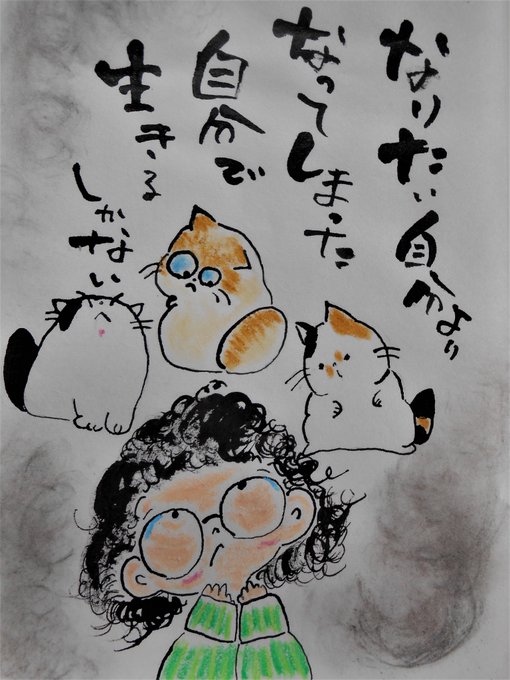 なりたい自分より
なってしまった
自分で
生きる
しかない